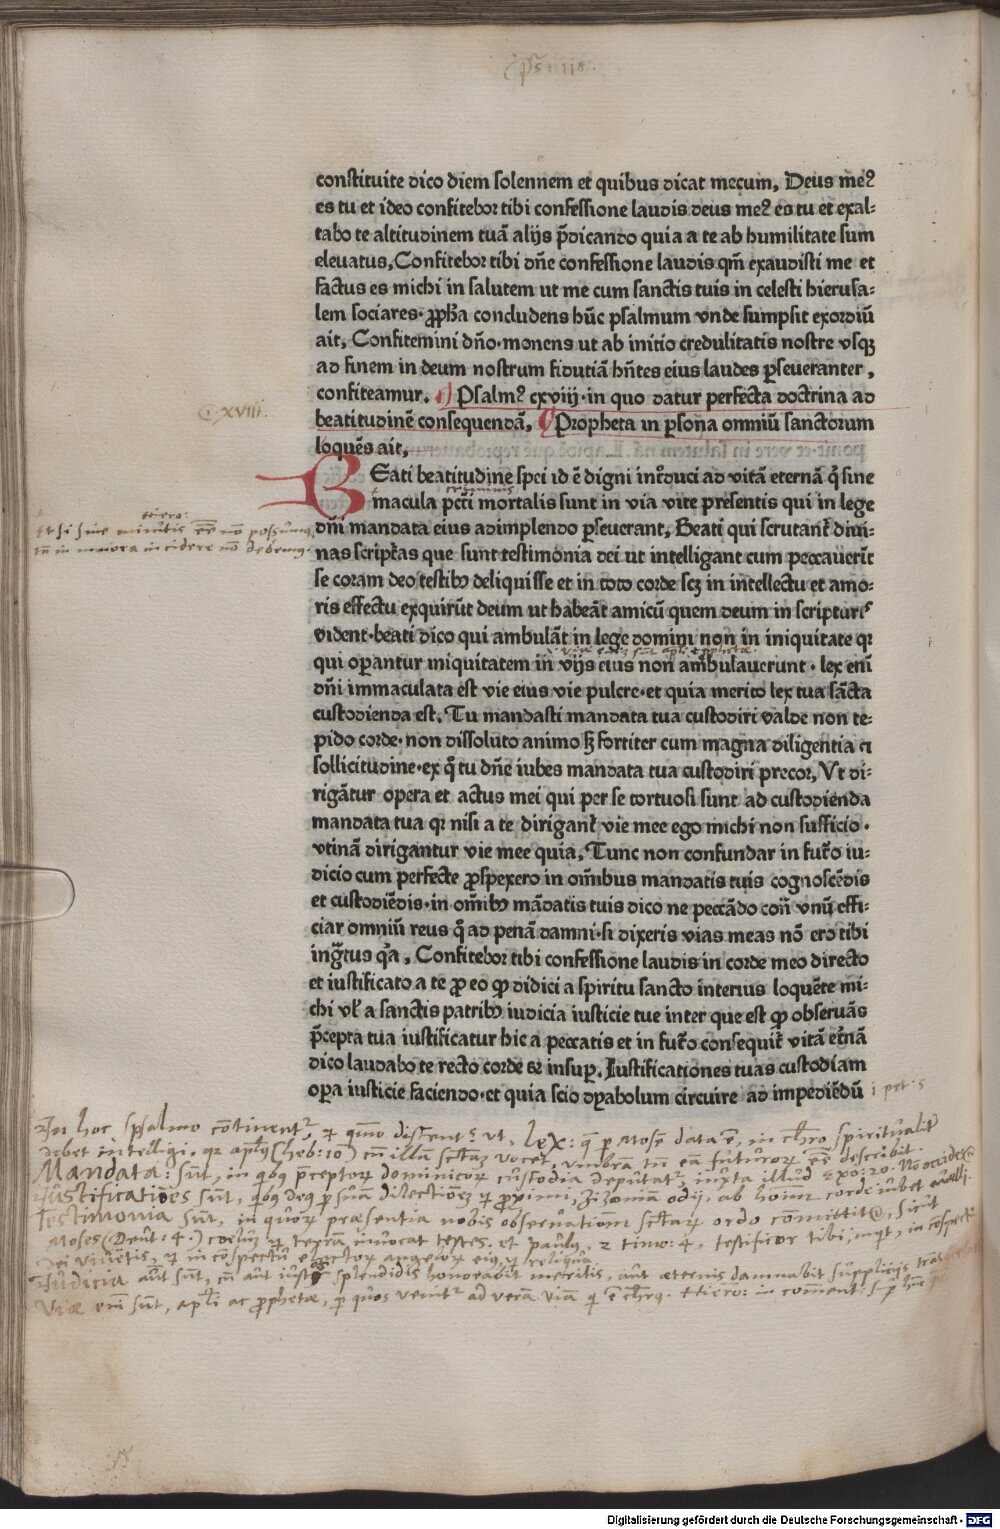 constituite dico diem solennem et quibus dicat mecum, Deus meꝰ
es tu et ideo confitebor tibi confessione laudis deus meꝰ es tu et exal⸗
tabo te altitudinem tuā alijs p̄dicando quia a te ab humilitate sum
eleuatus, Confitebor tibi dn̄e confessione laudis qm̄ exaudisti me et
factus es michi in salutem ut me cum sanctis tuis in celesti hierusa⸗
lem sociares· ꝓpħa concludens hūc psalmum vnde sumpsit exordiū
ait, Confitemini dn̄o· monens ut ab initio credulitatis nostre vsqꝫ
ad finem in deum nostrum fidutiā hn̄tes eius laudes ꝑseueranter,
confiteamur. Psalmꝰ cxviij· in quo datur perfecta doctrina ad
C xviii.
beatitudinē consequendā, Propheta in ꝑsona omniū sanctorum
loquēs ait,
BEati beatitudine spei id ē digni intͬduci ad vitā eternā qͥ sine
criminis
macula pctī mortalis sunt in via vite presentis qui in lege
Hiero:
Et si sine minutis eē nō possumꝰ,
tn̄ in maiora incidere nō debemꝰ.
dn̄i mandata eius adimplendo ꝑseuerant, Beati qui scrutant᷑ diui⸗
nas scriptas que sunt testimonia dei ut intelligant cum peccauerīt
se coram deo testibꝰ deliquisse et in toto corde scꝫ in intellectu et amo⸗
ris effectu exquirūt deum ut habeāt amicū quem deum in scripturis
vident· beati dico qui ambulāt in lege domini non in iniquitate qꝛ
qui oꝑantur iniquitatem in vijs eius non ambulauerunt· lex eni
dn̄i immaculata est vie eius vie pulcre· et quia merito lex tua sācta
custodienda est, Tu mandasti mandata tua custodiri valde non te⸗
pido corde· non dissoluto animo sꝫ fortiter cum magna diligentia et
sollicitudine· ex quo tu dn̄e iubes mandata tua custodiri precor, Vt di⸗
rigātur opera et actus mei qui per se tortuosi sunt ad custodienda
mandata tua qꝛ nisi a te dirigant᷑ vie mee ego michi non sufficio·
vtinā dirigantur vie mee quia, Tunc non confundar in futͦo iu⸗
dicio cum perfecte ꝓspexero in om̄ibus mandatis tuis cognoscēdis
et custodiēdis· in om̄ibꝰ mādatis tuis dico ne peccādo con̄ vnū effi⸗
ciar omniū reus qͦ ad penā damni· si dixeris vias meas nō ero tibi
ingͣtus qͥa, Confitebor tibi confessione laudis in corde meo directo
et iustificato a te ꝓ eo ꝙ didici a spiritu sancto interius loquēte mi⸗
chi vel a sanctis patribꝰ iudicia iusticie tue inter que est ꝙ obseruās
p̄cepta tua iustificatur hic a peccatis et in futͦo consequit᷑ vitā et̄nā
dico laudabo te recto corde et insuꝑ, Iustificationes tuas custodiam
oꝑa iusticie faciendo· et quia scio dyabolum circuire ad impediēdū
i pet · 5
In hoc psalmo cōtinentᷣ, et quō differentᷣ. ut, Lex: q̄ ꝑ Mosē data ē, in chr̄o spiritualit᷑
debet intelligi, qꝛ apl̄ꝰ (heb: 10) cū illā
Mandata: sūt, in qͥbꝰ p̄ceptorꝫ dominicorꝫ custodia deputatᷣ, iuxta illud exo: 20. Nō occides
Iustificatiōes sūt,
Testimonia sūt, in quorꝫ præsentia nobis obseruationē ordo cōmittit᷑, sicut
Moses (Deut: 4.) coelū et terrā inuocat testes, et Paulꝰ. 2 timo: 4. testificor tibi, inqͥt, in cōspectu
Dei viuētis, et in cōspectu electorꝫ angelorꝫ eiꝰ, et reliqua.
Iudicia aūt sūt, cū aut iustos splendidis honorabit meritis, aut æternis damnabit supplicijs
Viæ em̄ sūt, apl̄i ac ꝓphetæ, ꝑ quos venitᷣ ad verā viā qͥ ē chr̄ꝰ. Hiero: in coment:
Digitalisierung gefördert durch die Deutsche Forschungsgemeinschaft - DFG